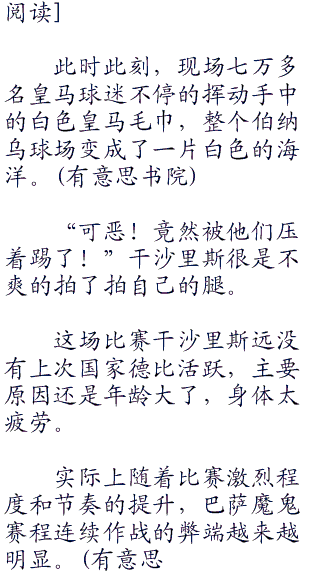 阅读]
此时此刻，现场七万多
名皇马球迷不停的挥动手中
的白色皇马毛巾，整个伯纳
乌球场变成了一片白色的海
洋。(有意思书院)
“可恶！竟然被他们压
着踢了！”干沙里斯很是不
爽的拍了拍自己的腿。
这场比赛干沙里斯远没
有上次国家德比活跃，主要
原因还是年龄大了，身体太
疲劳。
实际上随着比赛激烈程
度和节奏的提升，巴萨魔鬼
赛程连续作战的弊端越来越
明显。(有意思